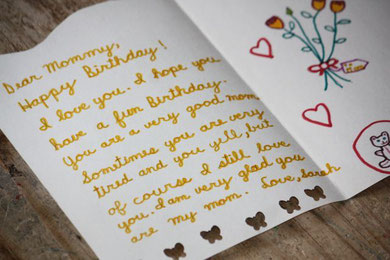 Dear Mommy,
Happy Birthday!
I love you. I hope you
have a fun Birthday.
You are a very good mom.
Sometimes you are very
tired and you yell, but
of course I still love
you. I am very glad you
are my mom. Love, Sarah